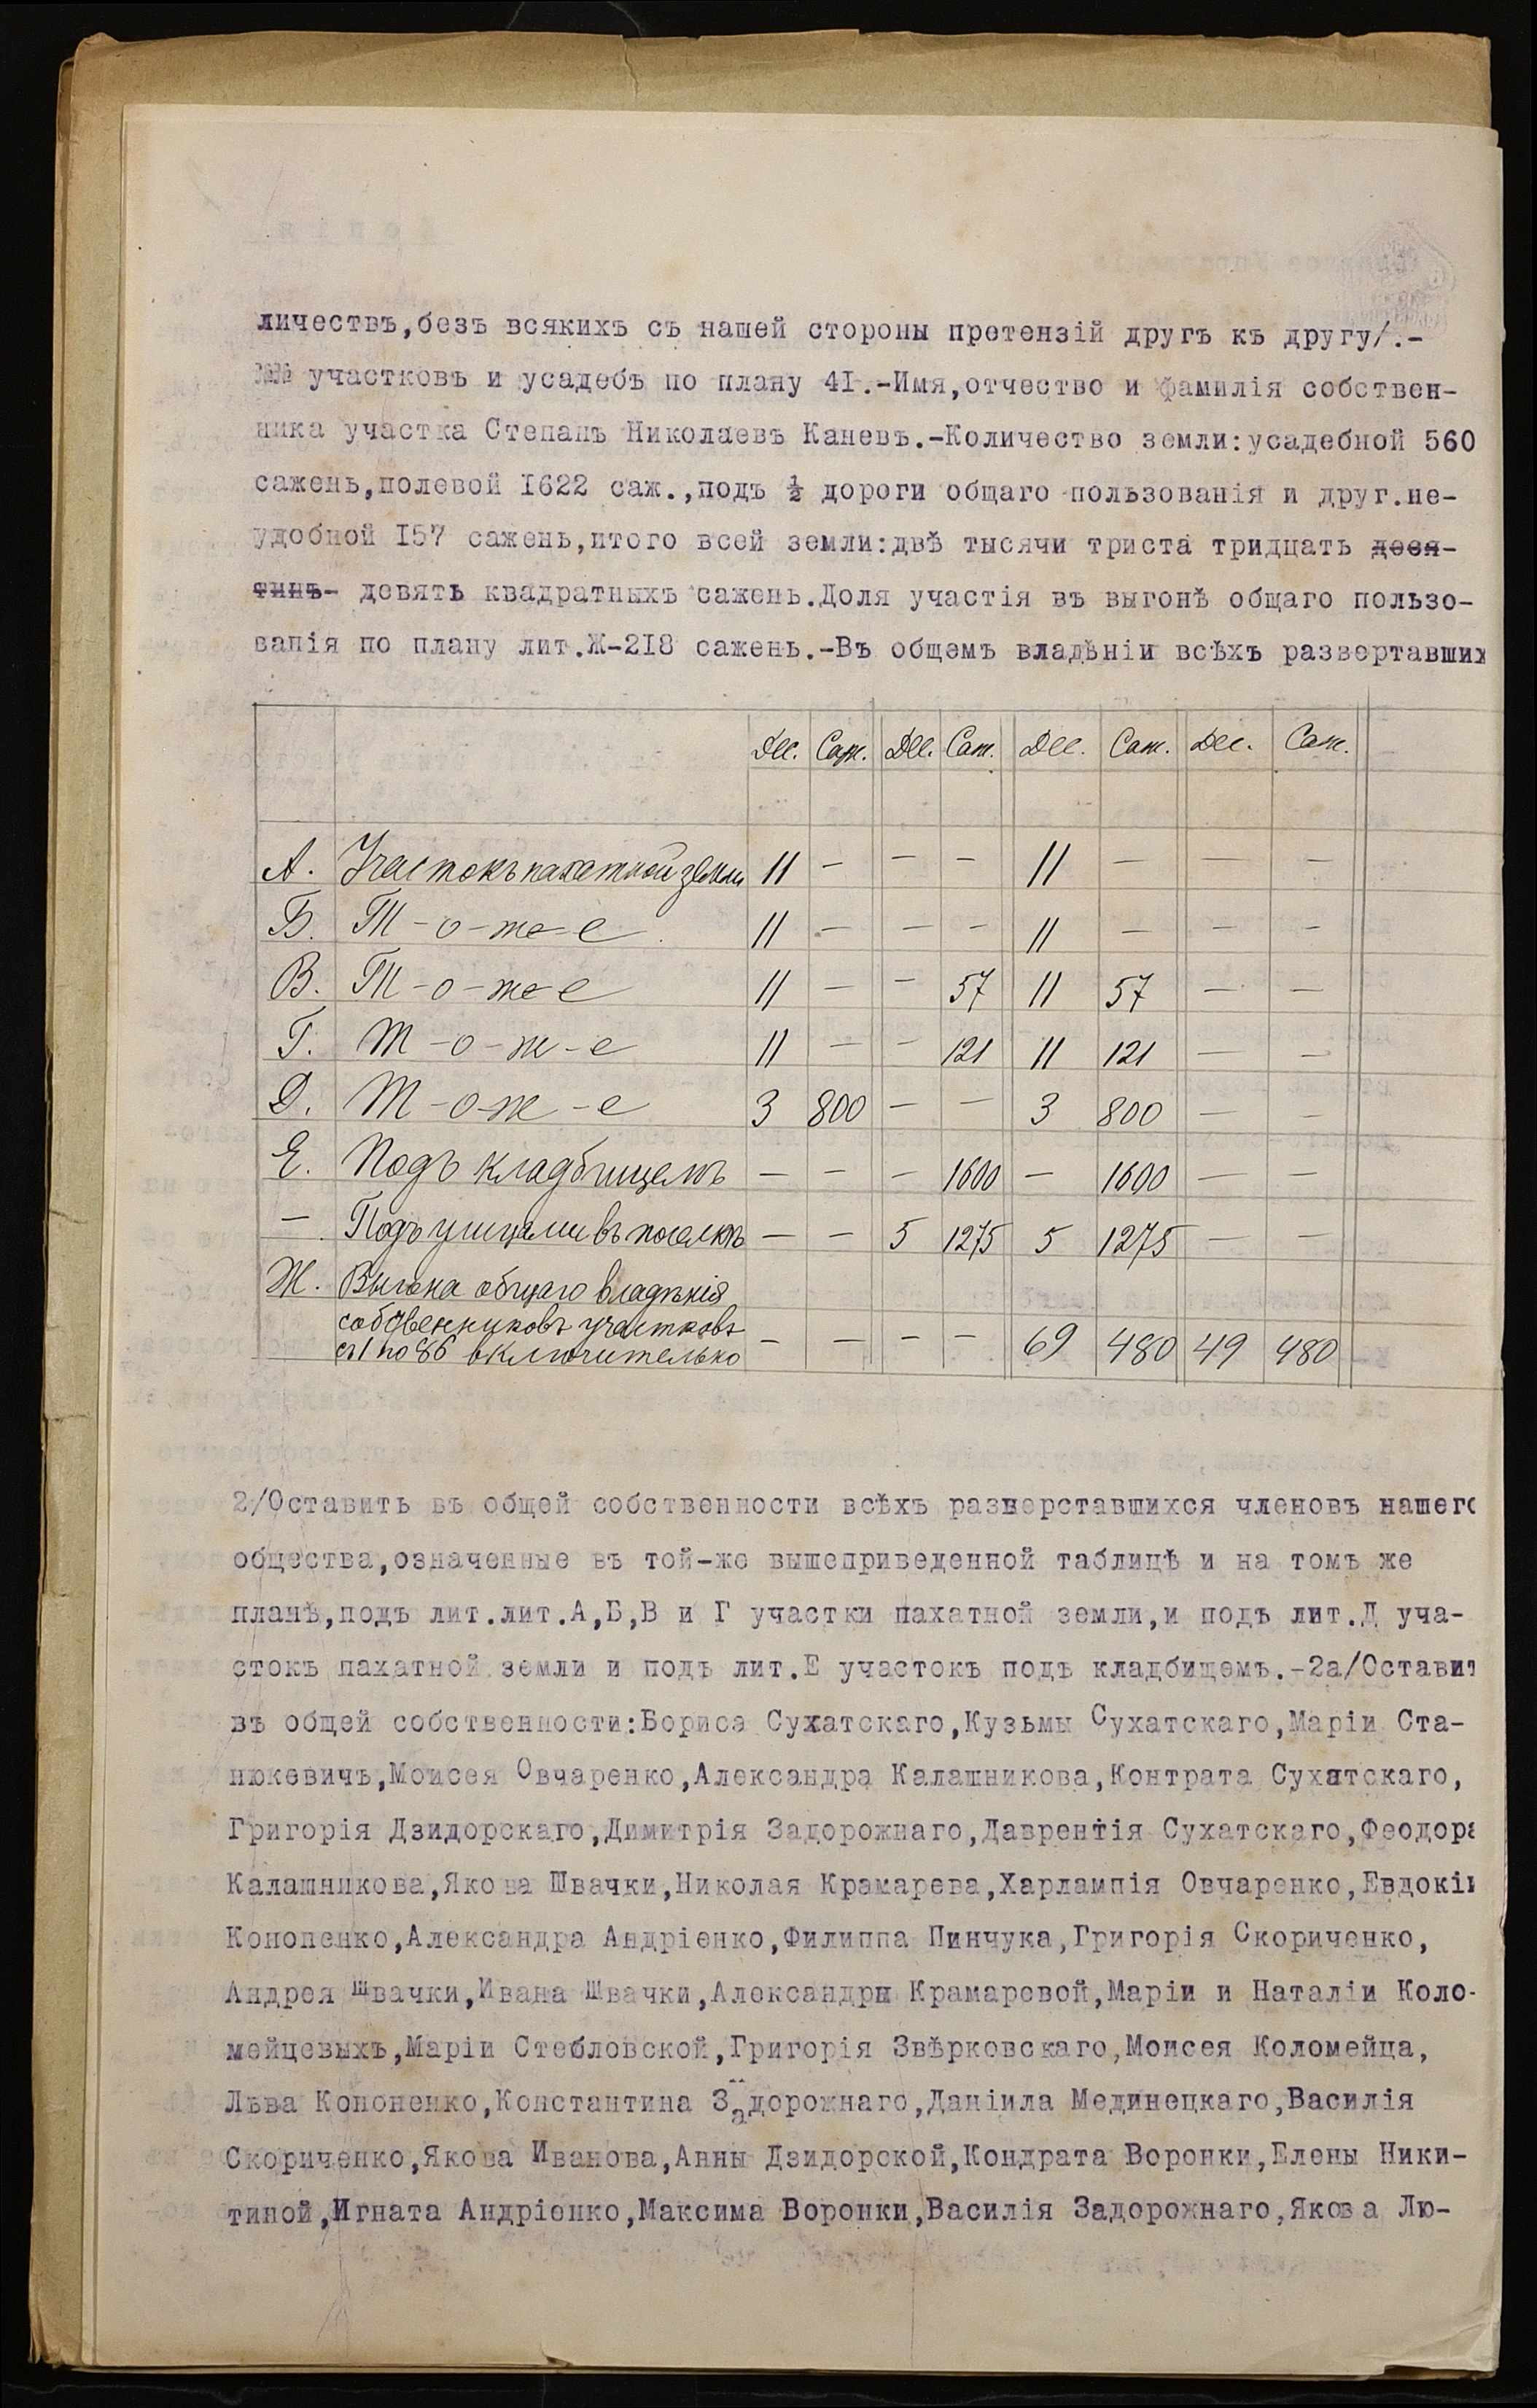 личествъ,безъ всякихъ съ нашей стороны претензій другъ къ другу/.-
№№ участковъ и усадебъ по плану 4I.-Имя,отчество и фамилія собствен-
ника участка Степанъ Николаевъ Каневъ.-Количество земли:усадебной 560
сажень,полевой I622 саж.,подъ ½ дороги общаго пользованія и друг.не-
удобной I57 сажень,итого всей земли:двѣ тысячи триста тридцать деся-
тинъ- девять квадратныхъ сажень.Доля участія въ выгонѣ общаго пользо-
ванія по плану лит.Ж-2I8 сажень.-Въ общемъ владѣніи всѣхъ развертавших
Дес. Саж. Дес. Саж. Дес. Саж. Дес. Саж.
А. Участокъ пахатной земли 11 — — — 11 — — —
Б. Т-о-ж-е 11 — — — 11 — — —
В. Т-о-ж-е 11 — — 57 11 57 — —
Г. Т-о-ж-е 11 — — 121 11 121 — —
Д. Т-о-ж-е 3 800 — — 3 800 — —
Е. Подъ кладбищемъ — — — 1600 — 1600 — —
— Подъ улицами въ поселкѣ — — 5 1275 5 1275 — —
Ж. Выгона общаго владѣнія
собственниковъ участковъ
съ 1 по 86 включительно — — — — 69 480 49 480
2/Оставить въ общей собственности всѣхъ разверставшихся членовъ нашего
общества,означенные въ той-же вышеприведенной таблицѣ и на томъ же
планѣ,подъ лит.лит.А,Б,В и Г участки пахатной земли,и подъ лит.Д уча-
стокъ пахатной земли и подъ лит.Е участокъ подъ кладбищемъ.-2а/Оставит
въ общей собственности:Бориса Сухатскаго,Кузьмы Сухатскаго,Маріи Ста-
нюкевичъ,Моисея Овчаренко,Александра Калашникова,Контрата Сухатскаго,
Григорія Дзидорскаго,Димитрія Задорожнаго,Даврентія Сухатскаго,Феодора
Калашникова,Якова Швачки,Николая Крамарева,Харлампія Овчаренко,Евдокіи
Конопенко,Александра Андріенко,Филиппа Пинчука,Григорія Скориченко,
Андрея Швачки,Ивана Швачки,Александры Крамаровой,Маріи и Наталіи Коло-
мейцевыхъ,Маріи Стебловской,Григорія Звѣрковскаго,Моисея Коломейца,
Льва Кононенко,Константина Задорожнаго,Даніила Мединецкаго,Василія
Скориченко,Якова Иванова,Анны Дзидорской,Кондрата Воронки,Елены Ники-
тиной,Игната Андріенко,Максима Воронки,Василія Задорожнаго,Якова Лю-